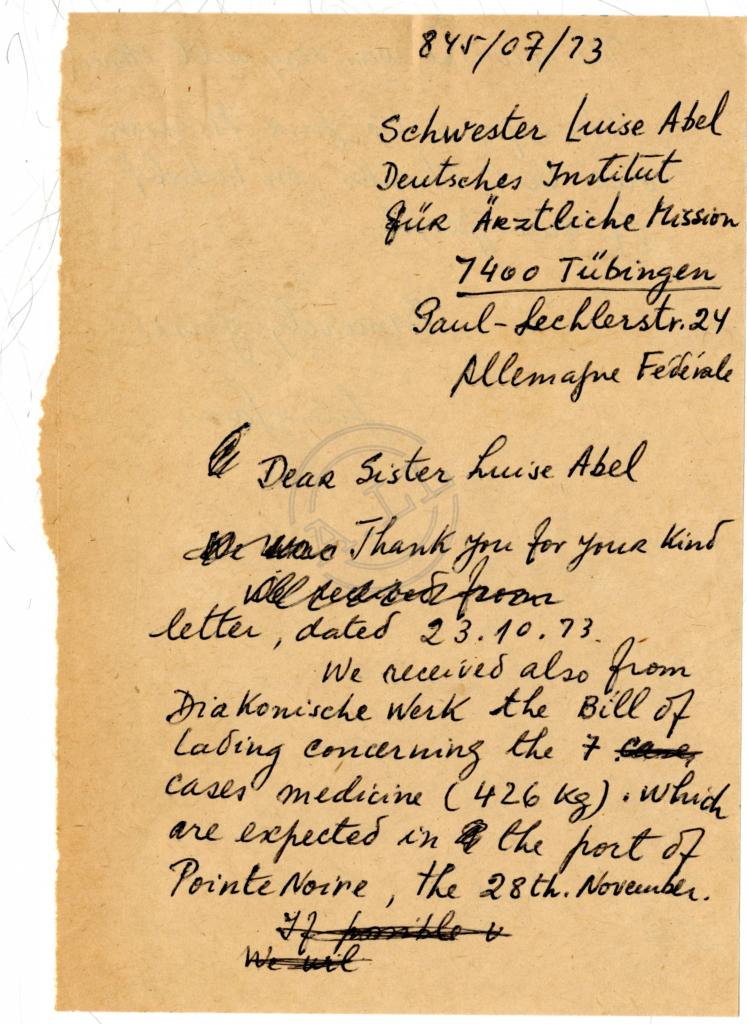 845/07/73
Schwester Luise Abel
Deutsches Institut
für Ärztliche Mission
7400 Tübingen
Paul-Lechlerstr. 24
Allemagne Fédérale
Dear Sister Luise Abel
We was Thank you for your kind
received from
letter, dated 23.10.73.
We received also from
Diakonische Werk the Bill of
Lading concerning the 7 case,
cases medicine (426 kg). which
are expected in the port of
Pointe Noire, the 28th. November.
If possible v
We wil